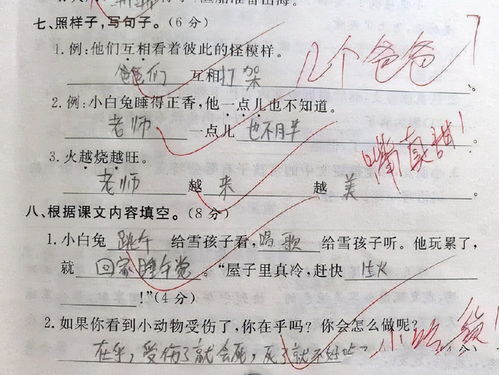 七、照样子,写句子。(6分)
1.例:他们互相看着彼此的怪模样。
爸爸们 互相打架 几个爸爸?
2.例:小白兔睡得正香,他一点儿也不知道。
老师 一点儿 也不月半
3.火越烧越旺。 嘴真甜!
老师 越 来 越 美
八、根据课文内容填空。(8分)
1.小白兔 跳午 给雪孩子看,唱歌 给雪孩子听。他玩累了,
就 回家睡午觉 。“屋子里真冷,赶快 生火
!”(4分)
2.如果你看到小动物受伤了,你在乎吗?你会怎么做呢?
在乎,受伤了就会死,死了就不好吃了 小吃货!